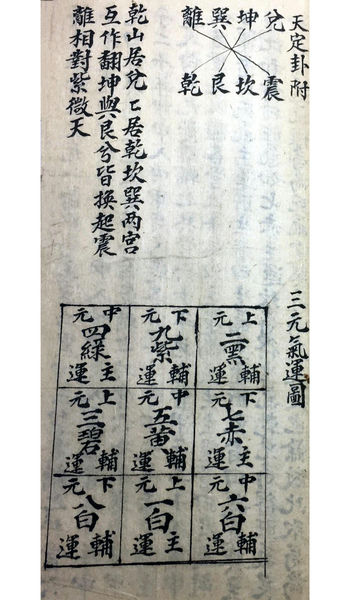 天定卦附
兌坤巽離
震坎艮乾
乾山居兌匕居乾坎巽两宮
互作翻坤與艮兮皆換起震
離相對紫微天
三元氣運圖
上元二黑輔運
下元七赤主運
中元六白輔運
下元九紫輔運
中元五黃輔運
上元一白主運
中元四綠主運
上元三碧輔運
下元八白輔運